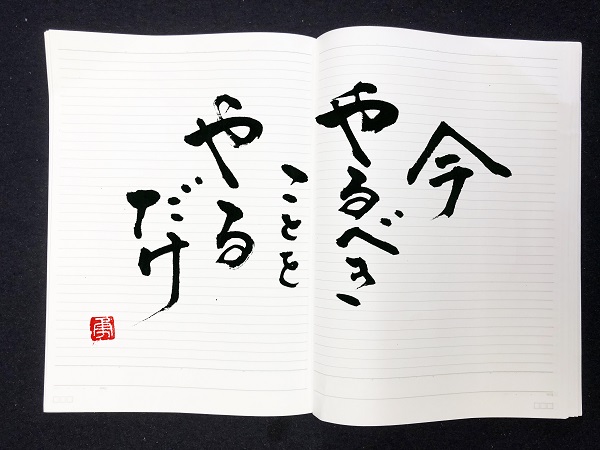 今
やるべき
ことを
やる
だけ